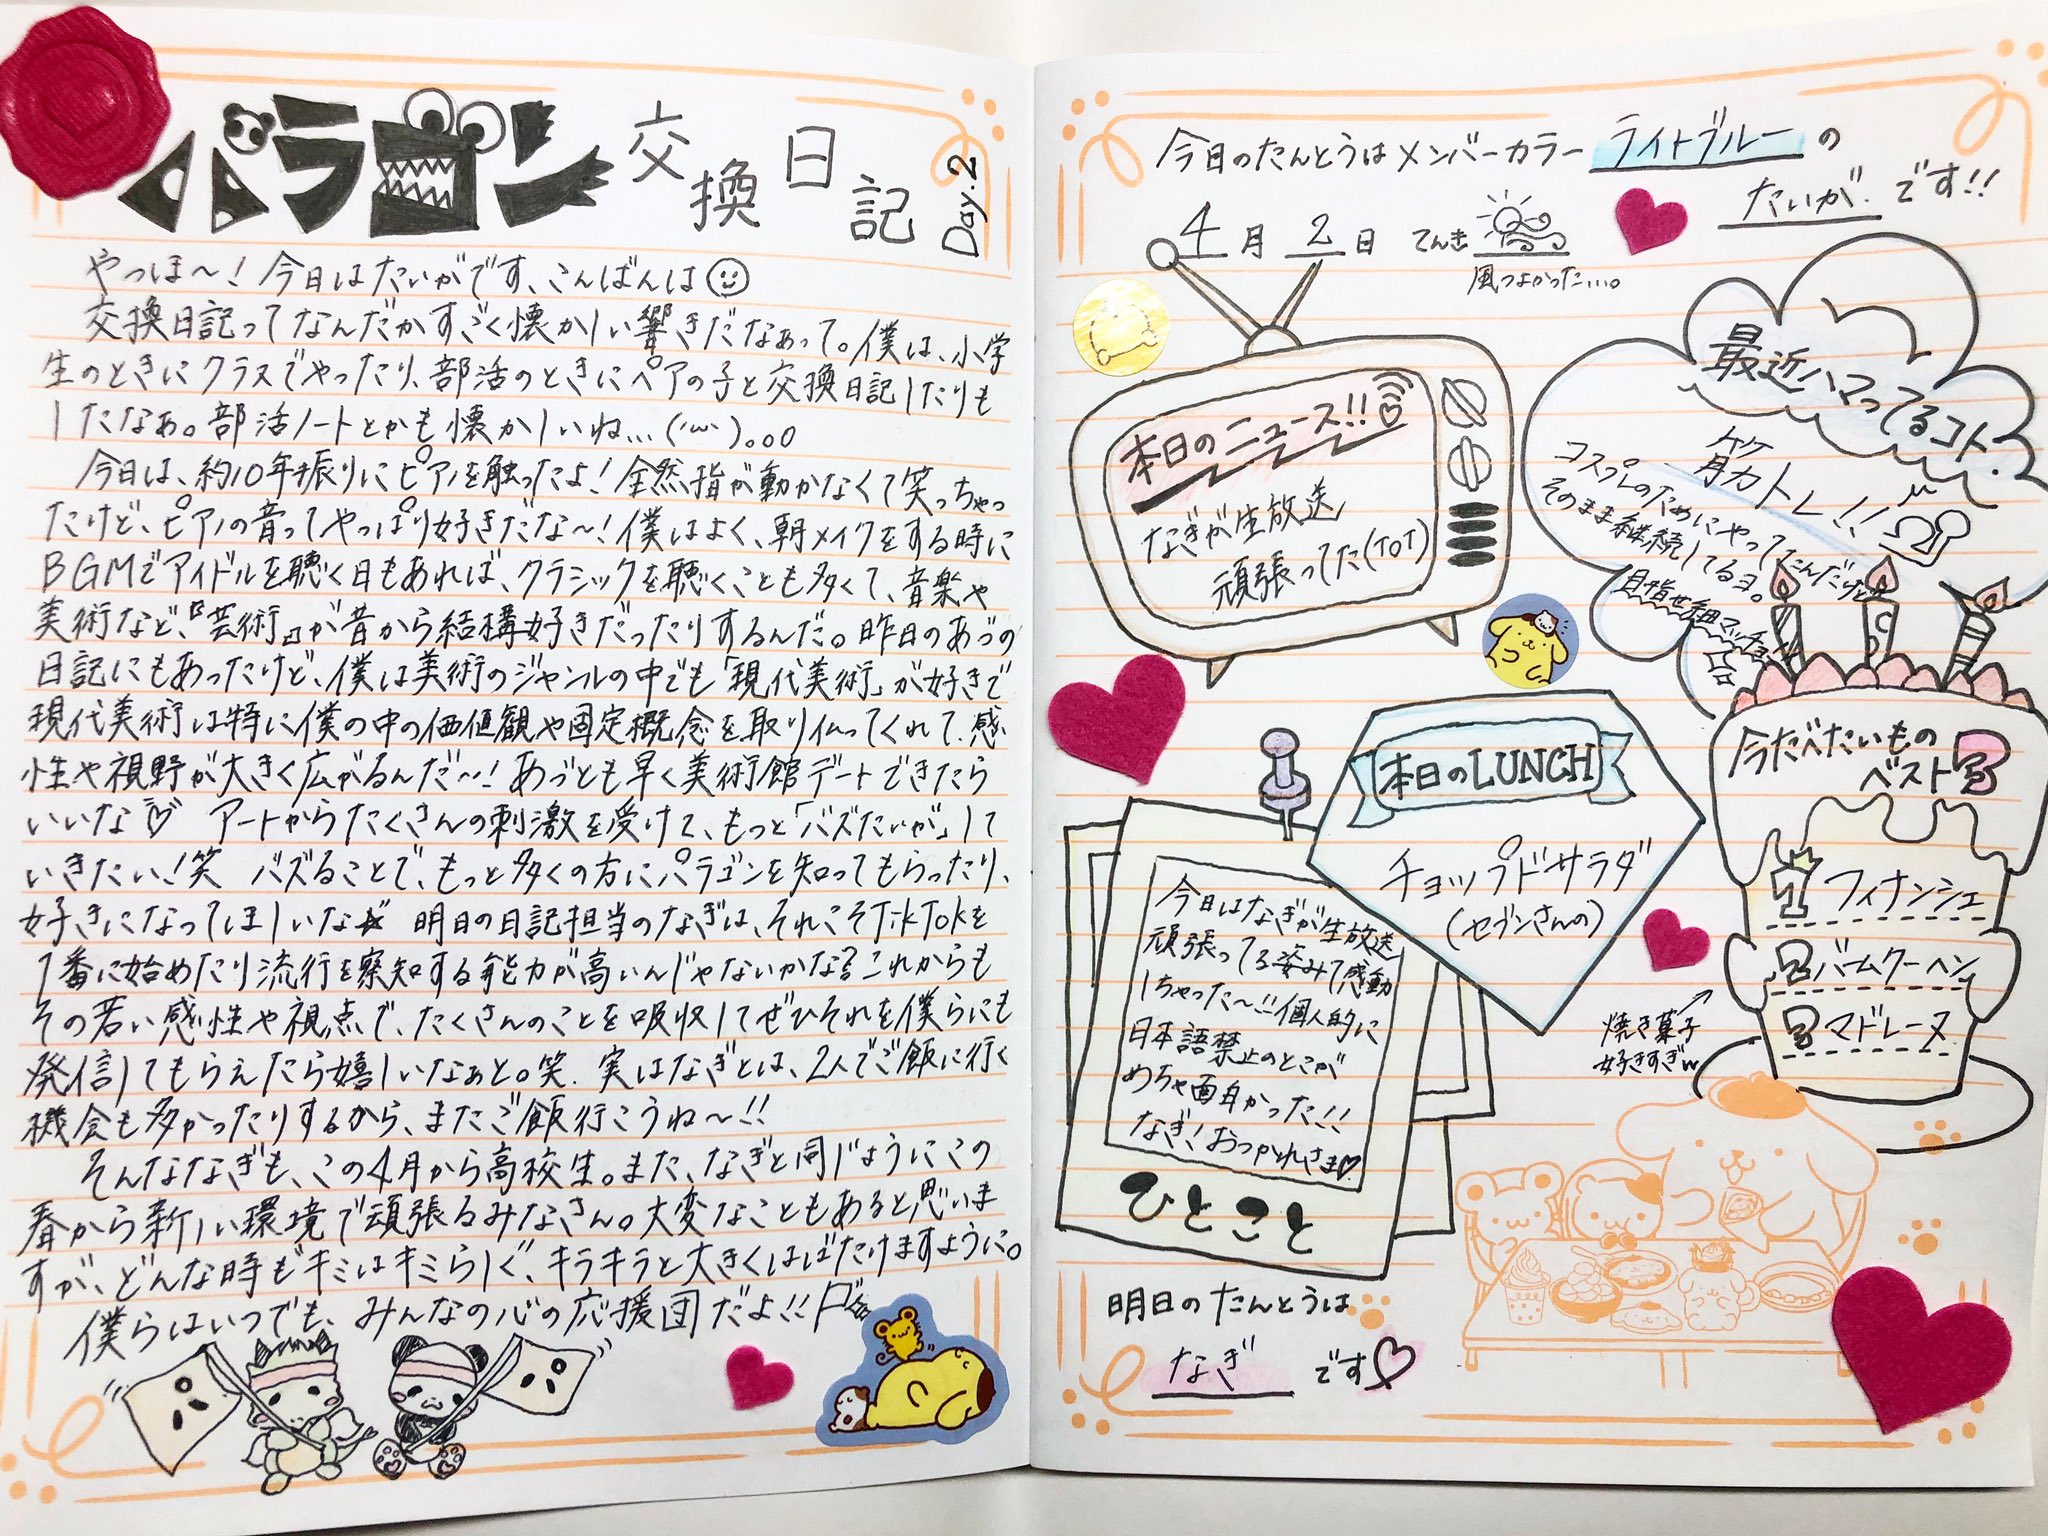 パラゴン交換日記
Day.2
やっほ〜！今日はたいがです、こんばんは
交換日記ってなんだかすごく懐かしい響きだなぁって。僕は、小学
生のときにクラスでやったり、部活のときにペアの子と交換日記したりも
したなぁ。部活ノートとかも懐かしいね…(´ω`)。oO
今日は、約10年振りにピアノを触ったよ！全然指が動かなくて笑っちゃっ
たけど、ピアノの音ってやっぱり好きだな〜！僕はよく、朝メイクをする時に
BGMでアイドルを聴く日もあれば、クラシックを聴くことも多くて、音楽や
美術など、『芸術』が昔から結構好きだったりするんだ。昨日のあづの
日記にもあったけど、僕は美術のジャンルの中でも「現代美術」が好きで
現代美術は特に僕の中の価値観や固定概念を取り払ってくれて、感
性や視野が大きく広がるんだ〜！あづとも早く美術館デートできたら
いいな♡ アートからたくさんの刺激を受けて、もっと「バズたいが」して
いきたい！笑 バズることで、もっと多くの方にパラゴンを知ってもらったり、
好きになってほしいな☆ 明日の日記担当のなぎは、それこそTikTokを
1番に始めたり流行を察知する能力が高いんじゃないかな？これからも
その若い感性や視点で、たくさんのことを吸収してぜひそれを僕らにも
発信してもらえたら嬉しいなぁと。笑 実はなぎとは、2人でご飯に行く
機会も多かったりするから、またご飯行こうね〜！！
そんななぎも、この4月から高校生。また、なぎと同じようにこの
春から新しい環境で頑張るみなさん。大変なこともあると思いま
すが、どんな時もキミはキミらしく、キラキラと大きくはばたけますように。
僕らはいつでも、みんなの心の応援団だよ！！
パ
パ
今日のたんとうはメンバーカラーライトブルーの
たいが.です!!
4月2日 てんき
風つよかった…。
本日のニュース!!
なぎが生放送
頑張ってた(ToT)
最近ハマってるコト.
筋トレ!!
コスプレのためにやってたんだけど
そのまま継続してるヨ。
目指せ細マッチョ
本日のLUNCH
チョップドサラダ
(セブンさんの)
今たべたいもの
ベスト3
1 フィナンシェ
2 バームクーヘン
3 マドレーヌ
焼き菓子
好きすぎw
今日はなぎが生放送
頑張ってる姿みて感動
しちゃった〜!!個人的に
日本語禁止のとこが
めちゃ面白かった!!
なぎ!おつかれさま♡
ひとこと
明日のたんとうは
なぎ です♡